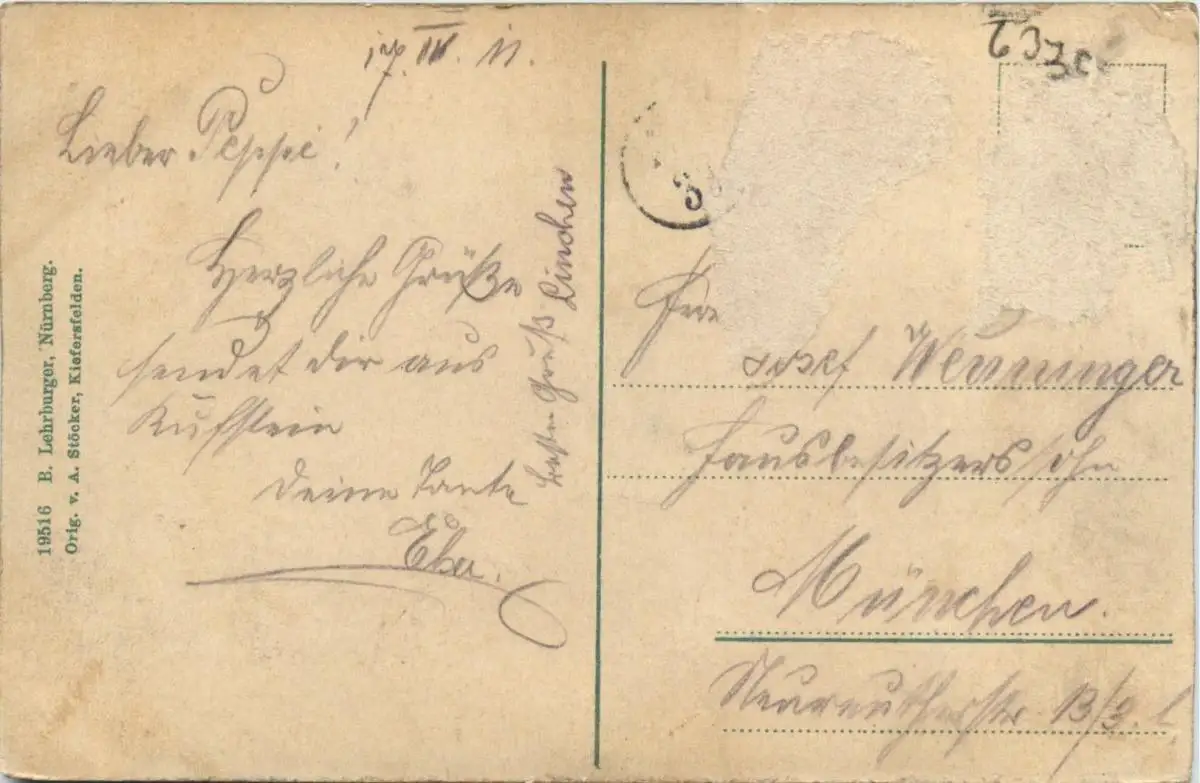 17. IV. 11.
Lieber Peppi!
Herzliche Grüße
sendet Dir aus
Kufstein
Deine Tante
Besten Gruß Linchen
19516 B. Lehrburger, Nürnberg.
Orig. v. A. Stöcker, Kiefersfelden.
Josef Wenninger
Hausbesitzerssohn
München.
Neureutherstr 13/3. l